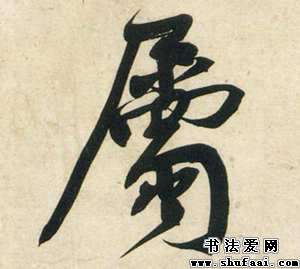 屬
书法爱网
www.shufaai.com